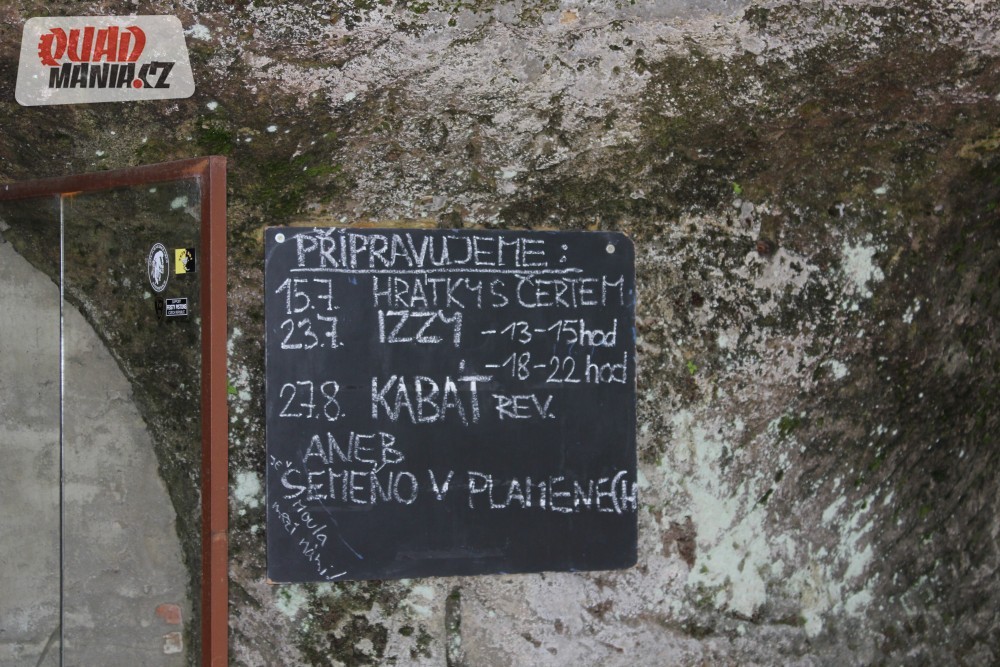 QUAD
MANIA.CZ
PŘÍPRAVUJEME:
15.7. HRÁTKY S ČERTEM
23.7. IZZY -13-15hod
-18-22 hod
27.8. KABÁT REV.
ANEB
ŠEMEŇO V PLAMENECH